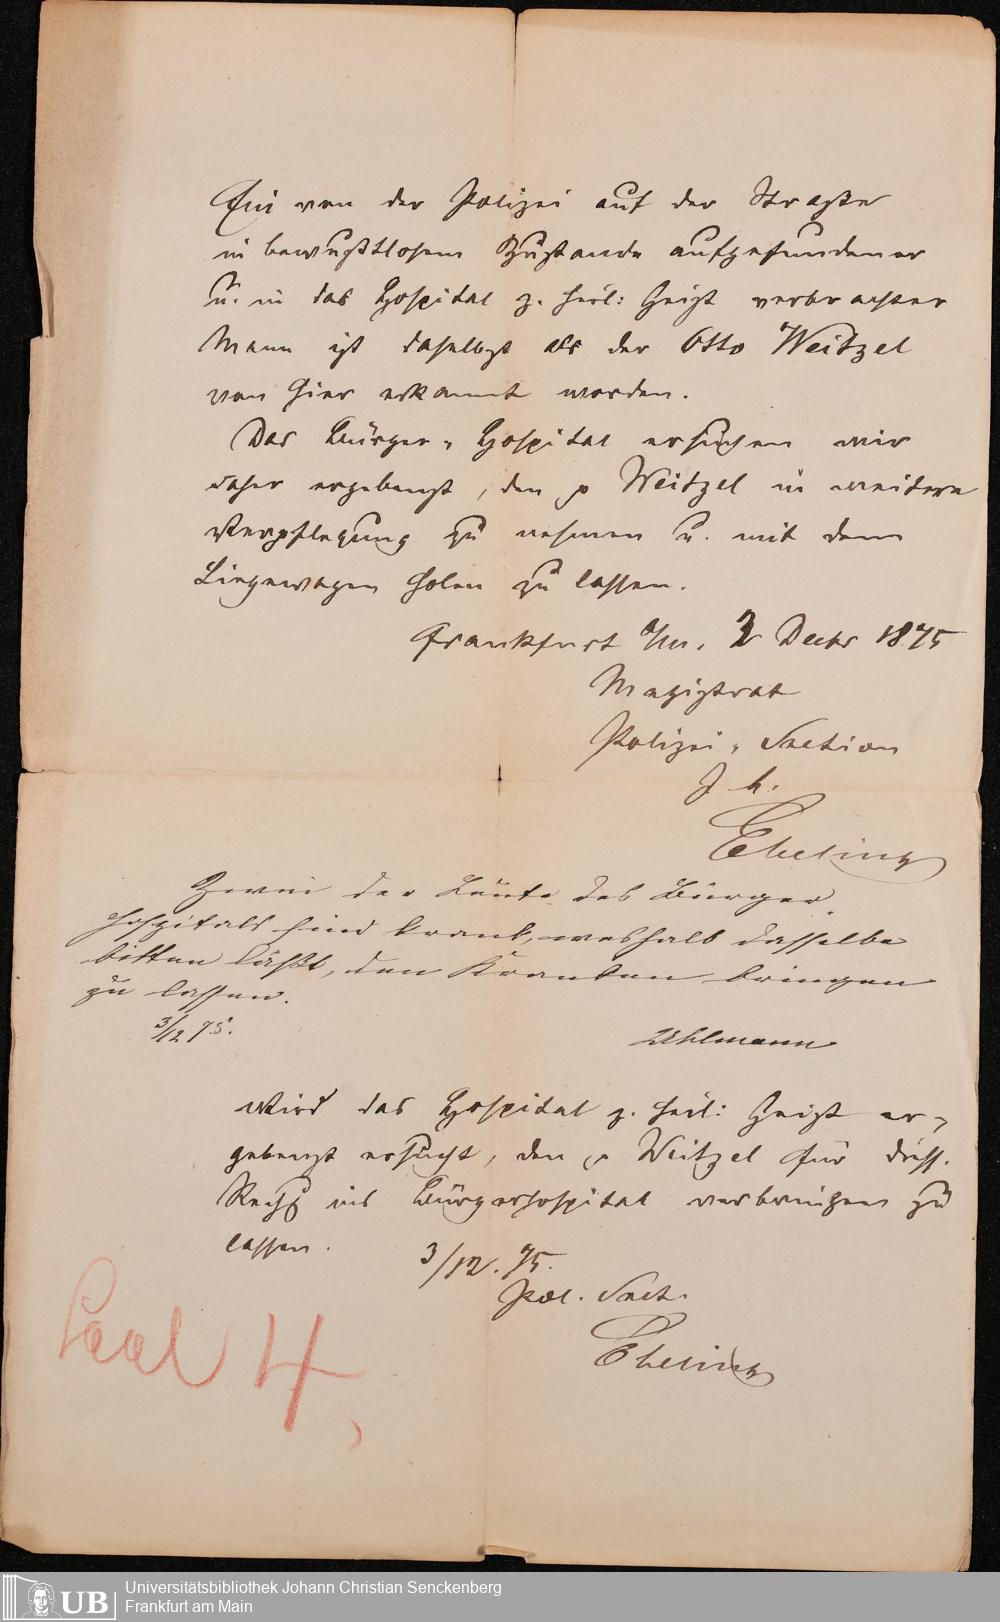 Ein von der Polizei auf der Straße
in bewußtlosem Zustande aufgefundener
u. in das Hospital z. heil: Geist verbrachter
Mann ist daselbst als der Otto Weitzel
von hier erkannt worden.
Das Bürger-Hospital ersuchen wir
daher ergebenst, den p Weitzel in weitere
Verpflegung zu nehmen u. mit dem
Liegewagen holen zu lassen.
Frankfurt a/m, 3 Decbr 1875
Magistrat
Polizei-Section
J. A.
Ebeling
Zwei der Leute des Bürger-
hospitals sind krank, weshalb dasselbe
bitten läßt, den Kranken bringen
zu lassen.
3/12 75.
Uhlmann
Wird das Hospital z. heil: Geist er-
gebenst ersucht, den p Weitzel für diess.
Rechg ins Bürgerhospital verbringen zu
lassen.
3/12. 75.
Pol. Sect.
Ebeling
Saal 4,
UB
Universitätsbibliothek Johann Christian Senckenberg
Frankfurt am Main